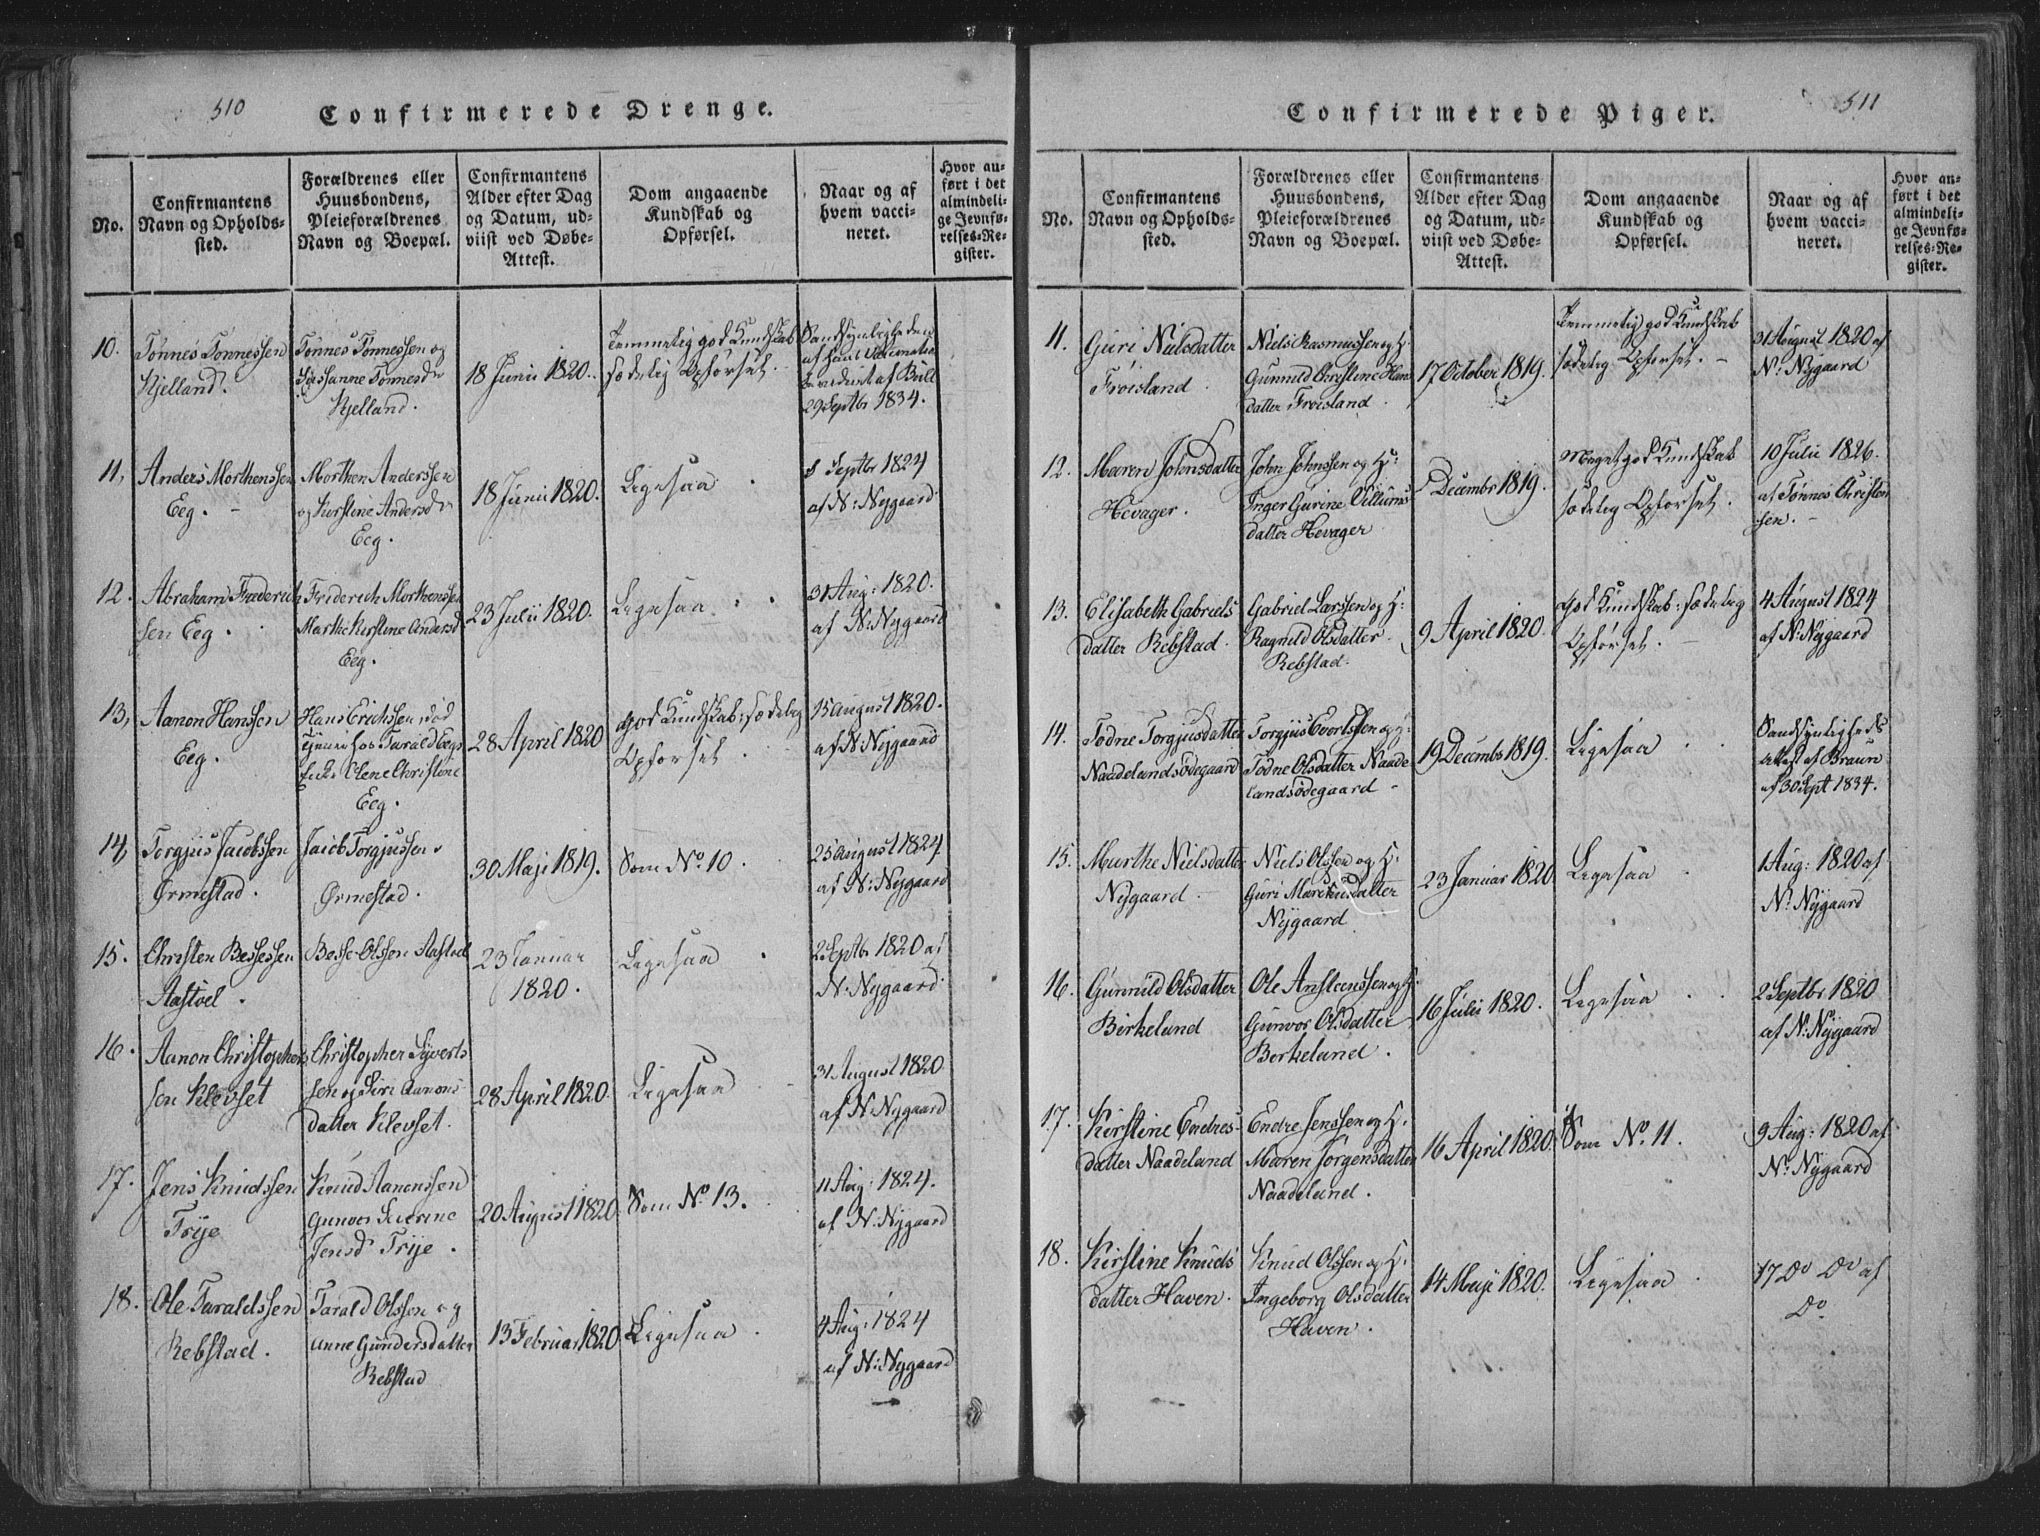 510
Confirmerede Drenge.
No.
Confirmantens
Navn og Opholds-
sted.
Forældrenes eller
Huusbondens,
Pleieforældrenes
Navn og Boepæl.
Confirmantens
Alder efter Dag
og Datum, ud-
viist ved Døbe-
Attest.
Dom angaaende
Kundskab og
Opførsel.
Naar og af
hvem vacci-
neret.
Hvor an-
ført i det
almindeli-
ge Jevnfø-
relses-Re-
gister.
10.
Tønnes Tønnessen
Kjelland.
Tønnes Tønnessen og
Susanne Tønnesd
Kjelland.
18 Junii 1820.
Temmelig god Kundskab
sædelig Opførsel.
Sandsynligheden
af havt Vaccination
bevidnet af Bull
29 Septbr 1834.
11,
Anders Morthenssen
Eeg.
Morthen Anderssen
og Kirstine Andersd
Eeg.
18 Junii 1820.
Ligesaa
8 Septbr 1824
af N: Nygaard
12.
Abraham Frederich
sen Eeg.
Friderich Morthenssen
Marthe Kirstine Andersd
Eeg.
23 Julii 1820.
Ligesaa
31 Aug: 1820.
af N: Nygaard
13,
Aanon Hanssen
Eeg.
Hans Erichssen, død
tjener hos Tarald Eegs
Enke Elene Christine
Eeg.
28 April 1820
god Kundskab: sædelig
Opførsel
15 August 1820.
af N: Nygaard
14,
Torgjus Jacobssen
Ørmestad.
Jacob Torgjussen
Ørmestad.
30 Maji 1819.
Som No. 10.
25 August 1824
af N: Nygaard
15.
Christen Bessessen
Aastvel.
Besse Olssen Aastvel
23 Januar
1820.
Ligesaa
2 Septbr 1820 af
N: Nygaard.
16.
Aanon Christophers
sen Klevset
Christopher Syverts
sen og Siri Aanons
datter Klevset.
28 April 1820.
Ligesaa
31 August 1820
af N: Nygaard
17.
Jens Knudssen
Trije
Knud Aanenssen
Gunvor Severine
Jensd Trije.
20 August 1820
Som No. 13.
11 Aug: 1824.
af N: Nygaard
18.
Ole Taraldssen
Rebstad.
Tarald Olssen og
Anne Gundersdatter
Rebstad
13 Februar 1820
Ligesaa
4 Aug: 1824
af N: Nygaard
511
Confirmerede Piger.
No.
Confirmantens
Navn og Opholds-
sted.
Forældrenes eller
Huusbondens,
Pleieforældrenes
Navn og Boepæl.
Confirmantens
Alder efter Dag
og Datum, ud-
viist ved Døbe-
Attest.
Dom angaaende
Kundskab og
Opførsel.
Naar og af
hvem vacci-
neret.
Hvor an-
ført i det
almindeli-
ge Jevnfø-
relses-Re-
gister.
11.
Guri Nielsdatter
Frøisland
Niels Rasmussen og H.
Gunnild Christine Hans
datter Frøisland.
17 October 1819.
Temmelig god Kundskab
sædelig Opførsel.
31 August 1820 af
N: Nygaard
12.
Maren Johnsdatter
Hevager.
John Johnssen og H:
Inger Gurine Villums
datter Hevager
Decembr 1819.
Meget god Kundskab
sædelig Opførsel.
10 Julii 1826.
af Tønnes Christen
sen.
13.
Elisabeth Gabriels
datter Rebstad.
Gabriel Larssen og H:
Ragnild Olsdatter
Rebstad.
9 April 1820.
god Kundskab: sædelig
Opførsel.
4 August 1824
af N: Nygaard
14.
Todne Torgjusdatter
Naadelandsødegaard
Torgjus Evertssen og H:
Todne Olsdatter Naade
landsødegaard
19 Decembr 1819.
Ligesaa
Sandsynligheds
Attest af Braun
af 30 Sept 1834.
15.
Marthe Nielsdatter
Nygaard
Niels Olssen og H:
Guri Marcusdatter
Nygaard
23 Januar 1820
Ligesaa
1 Aug: 1820 af
N: Nygaard
16.
Gunnild Olsdatter
Birkeland
Ole Ansteenssen og H.
Gunvor Olsdatter
Berkeland.
16 Julii 1820.
Ligesaa
2 Septbr 1820
af N: Nygaard
17.
Kirstine Endres-
datter Naadeland
Endre Jenssen og H.
Maren Jørgensdatter
Naadeland.
16 April 1820.
Som No. 11.
9 Aug: 1820 af
N: Nygaard
18.
Kirstine Knuds
datter Haven.
Knud Olssen og H.
Ingeborg Olsdatter
Haven.
14 Maji 1820.
Ligesaa
17 Do Do af
Do